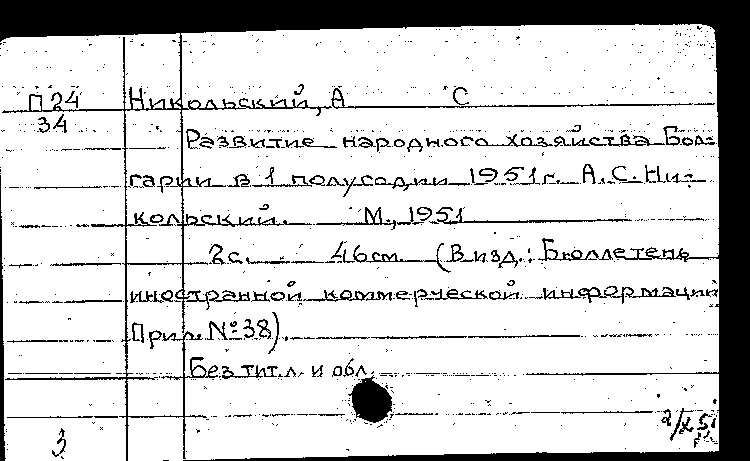 П 24 Никольский, А С
34
Развитие народного хозяйства Бол=
гарии в 1 полугодии 1951 г. А.С. Ни=
кольский. М., 1951
2 с. 46 см. (В изд.: Бюллетень
иностранной коммерческой информации
Прил. № 38).
Без тит. л. и обл.
3